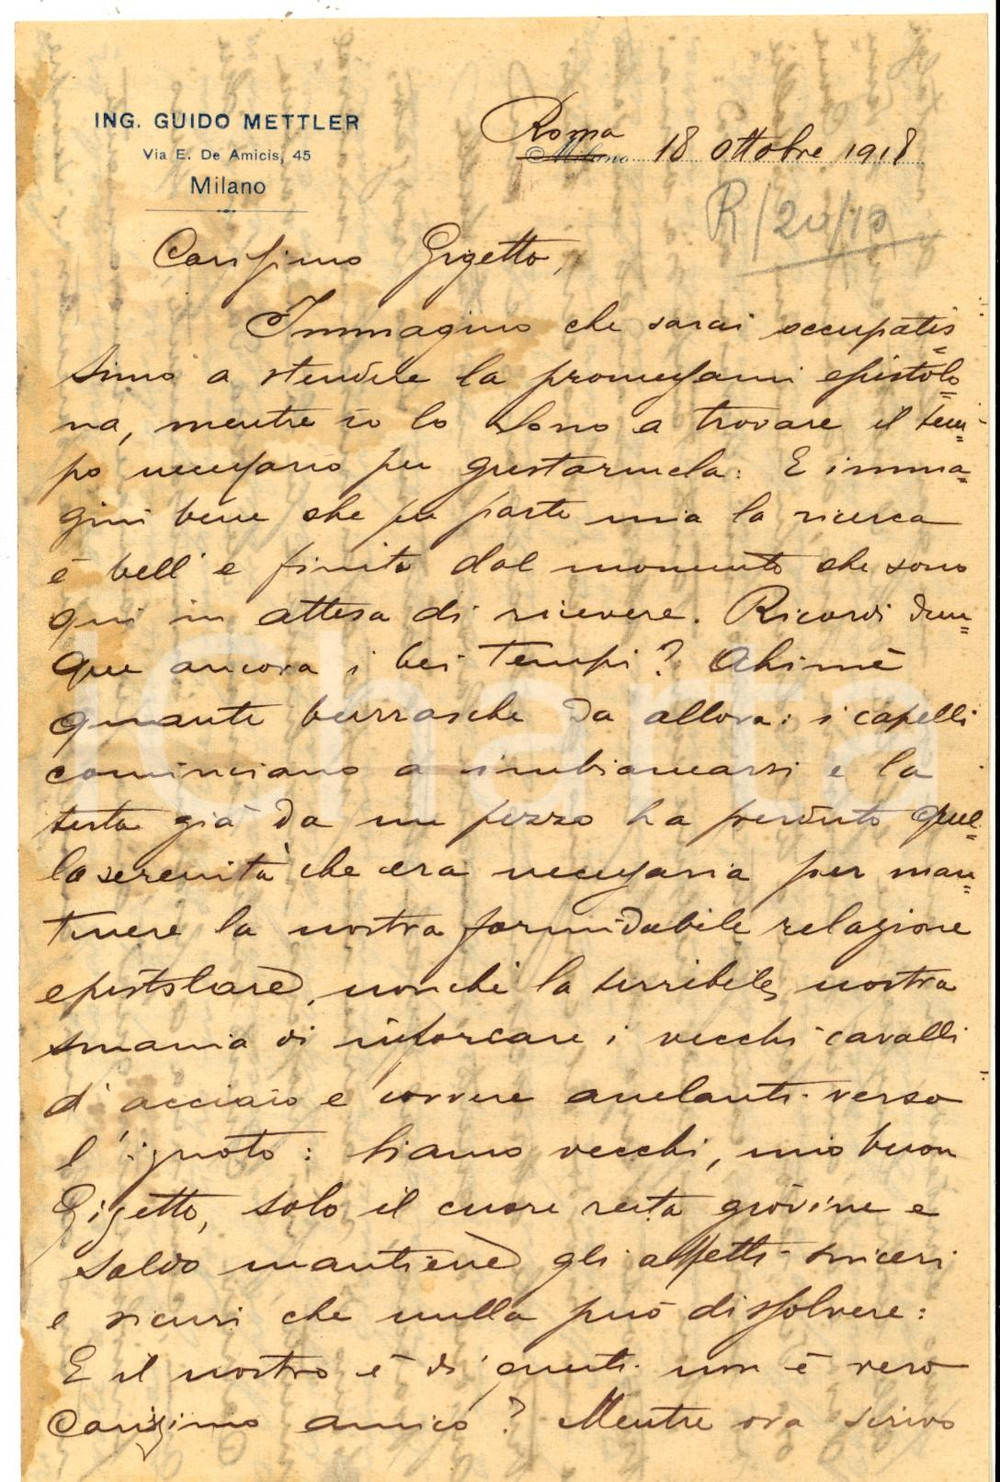 ING. GUIDO METTLER
Via E. De Amicis, 45
Milano
Roma
Milano 18 Ottobre 1918
R/20/10
Carissimo Gigetto,
Immagino che sarai occupatis=
simo a stendere la promessami epistolo=
na, mentre io lo sono a trovare il tem=
po necessario per gustarmela: E imma=
gini bene che per parte mia la ricerca
è bell'e finita dal momento che sono
qui in attesa di ricevere. Ricordi dun=
que ancora i bei tempi? Ahimè
quante burrasche da allora: i capelli
cominciano a imbiancarsi e la
testa già da un pezzo ha perduto quel=
la serenità che era necessaria per man=
tenere la nostra formidabile relazione
epistolare, nonchè la terribile nostra
smania di inforcare i vecchi cavalli
d'acciaio e correre anelanti verso
l'ignoto: siamo vecchi, mio buon
Gigetto, solo il cuore resta giovine e
saldo mantiene gli affetti sinceri
e sicuri che nulla può dissolvere:
E il nostro è di questi non è vero
Carissimo amico? Mentre ora scrivo
Charta